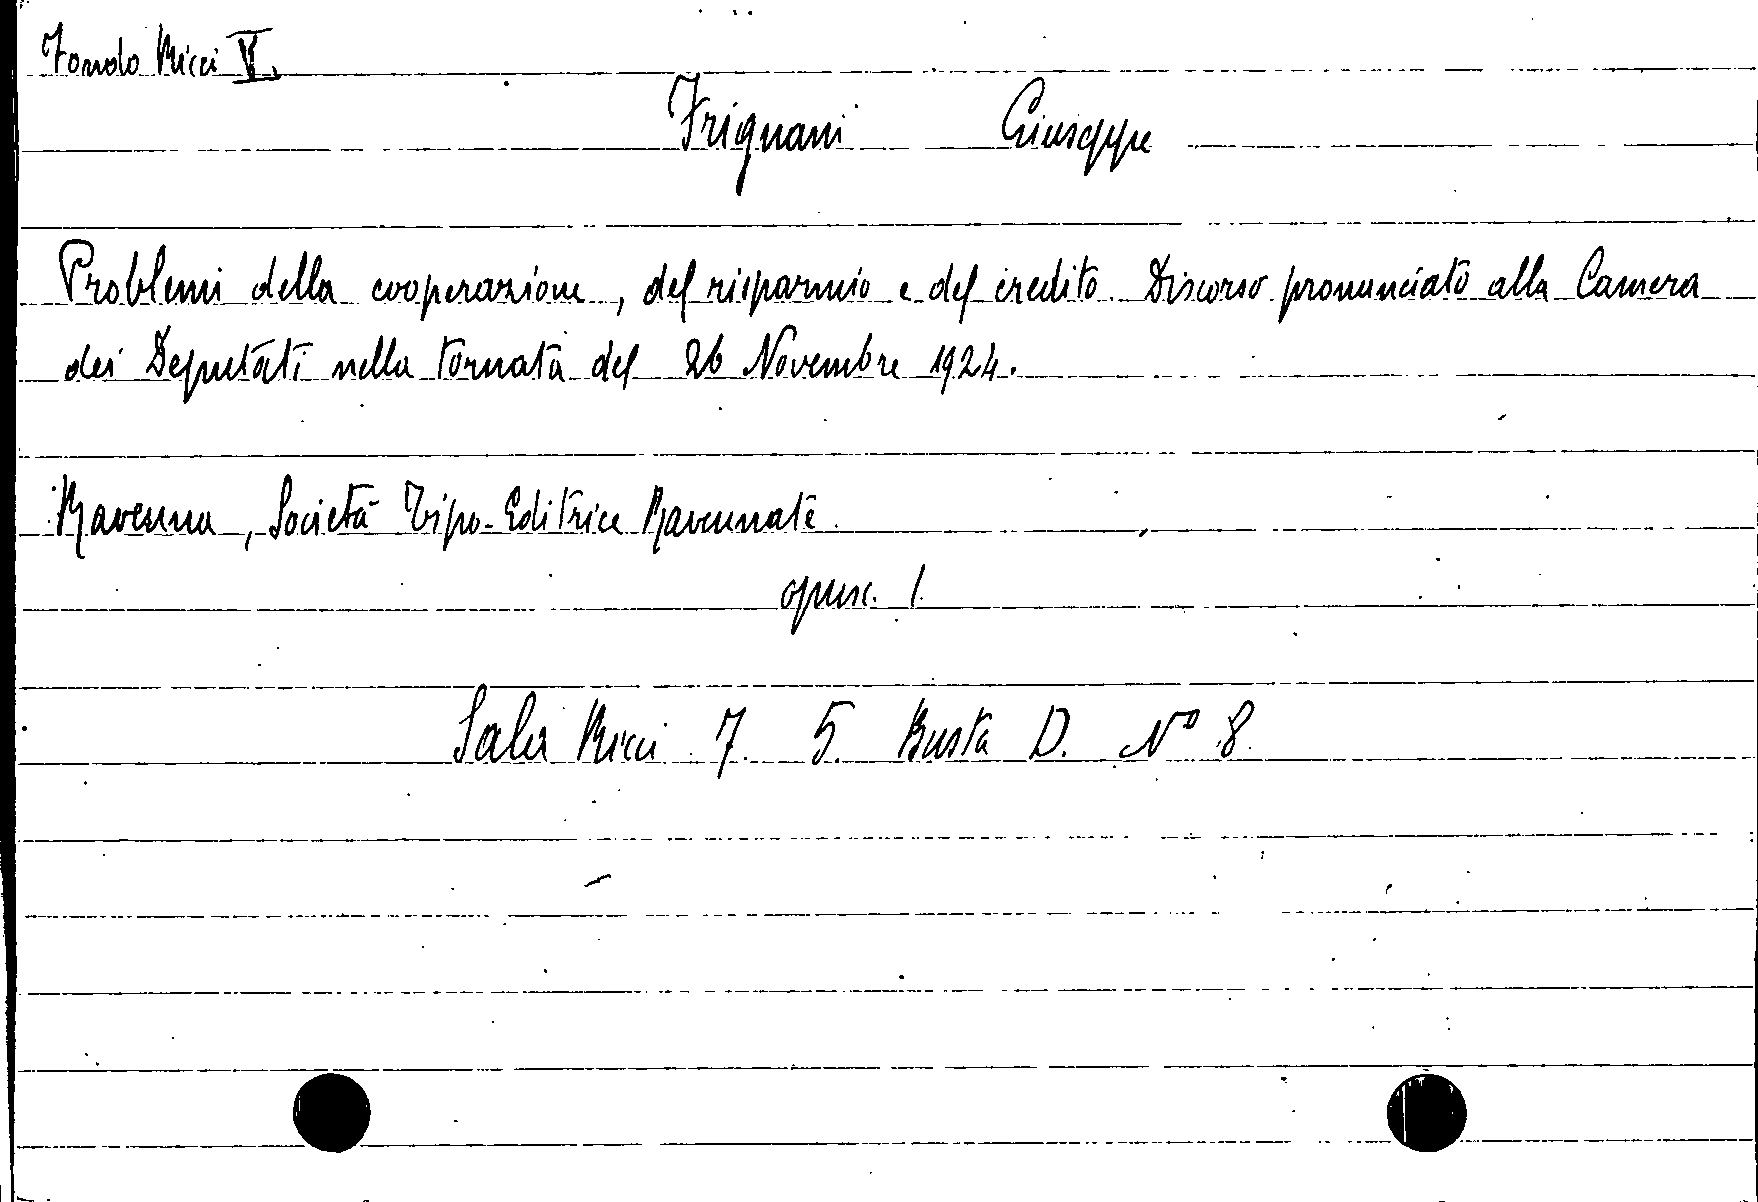 Fondo Ricci V.
Frignani Giuseppe
Problemi della cooperazione, del risparmio e del credito. Discorso pronunciato alla Camera
dei Deputati nella tornata del 26 Novembre 1924.
Ravenna, Società Tipo-Editrice Ravennate.
opusc. 1.
Sala Ricci 7. 5. Busta D. Nº 8.